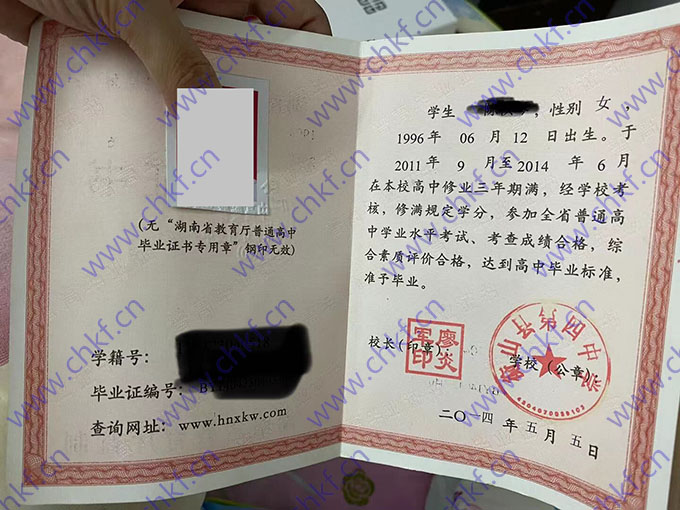 (无“湖南省教育厅普通高中
毕业证书专用章”钢印无效)
学籍号：
毕业证编号：
查询网址：www.hnxkw.com
学生 ，性别 女，
1996年 06月 12日出生。于
2011年 9月至2014年 6月
在本校高中修业三年期满，经学校考
核，修满规定学分，参加全省普通高
中学业水平考试、考查成绩合格，综
合素质评价合格，达到高中毕业标准，
准予毕业。
校长(印章)
学校(公章)
山县第四中学
二〇一四年五月五日
www.chkf.cn